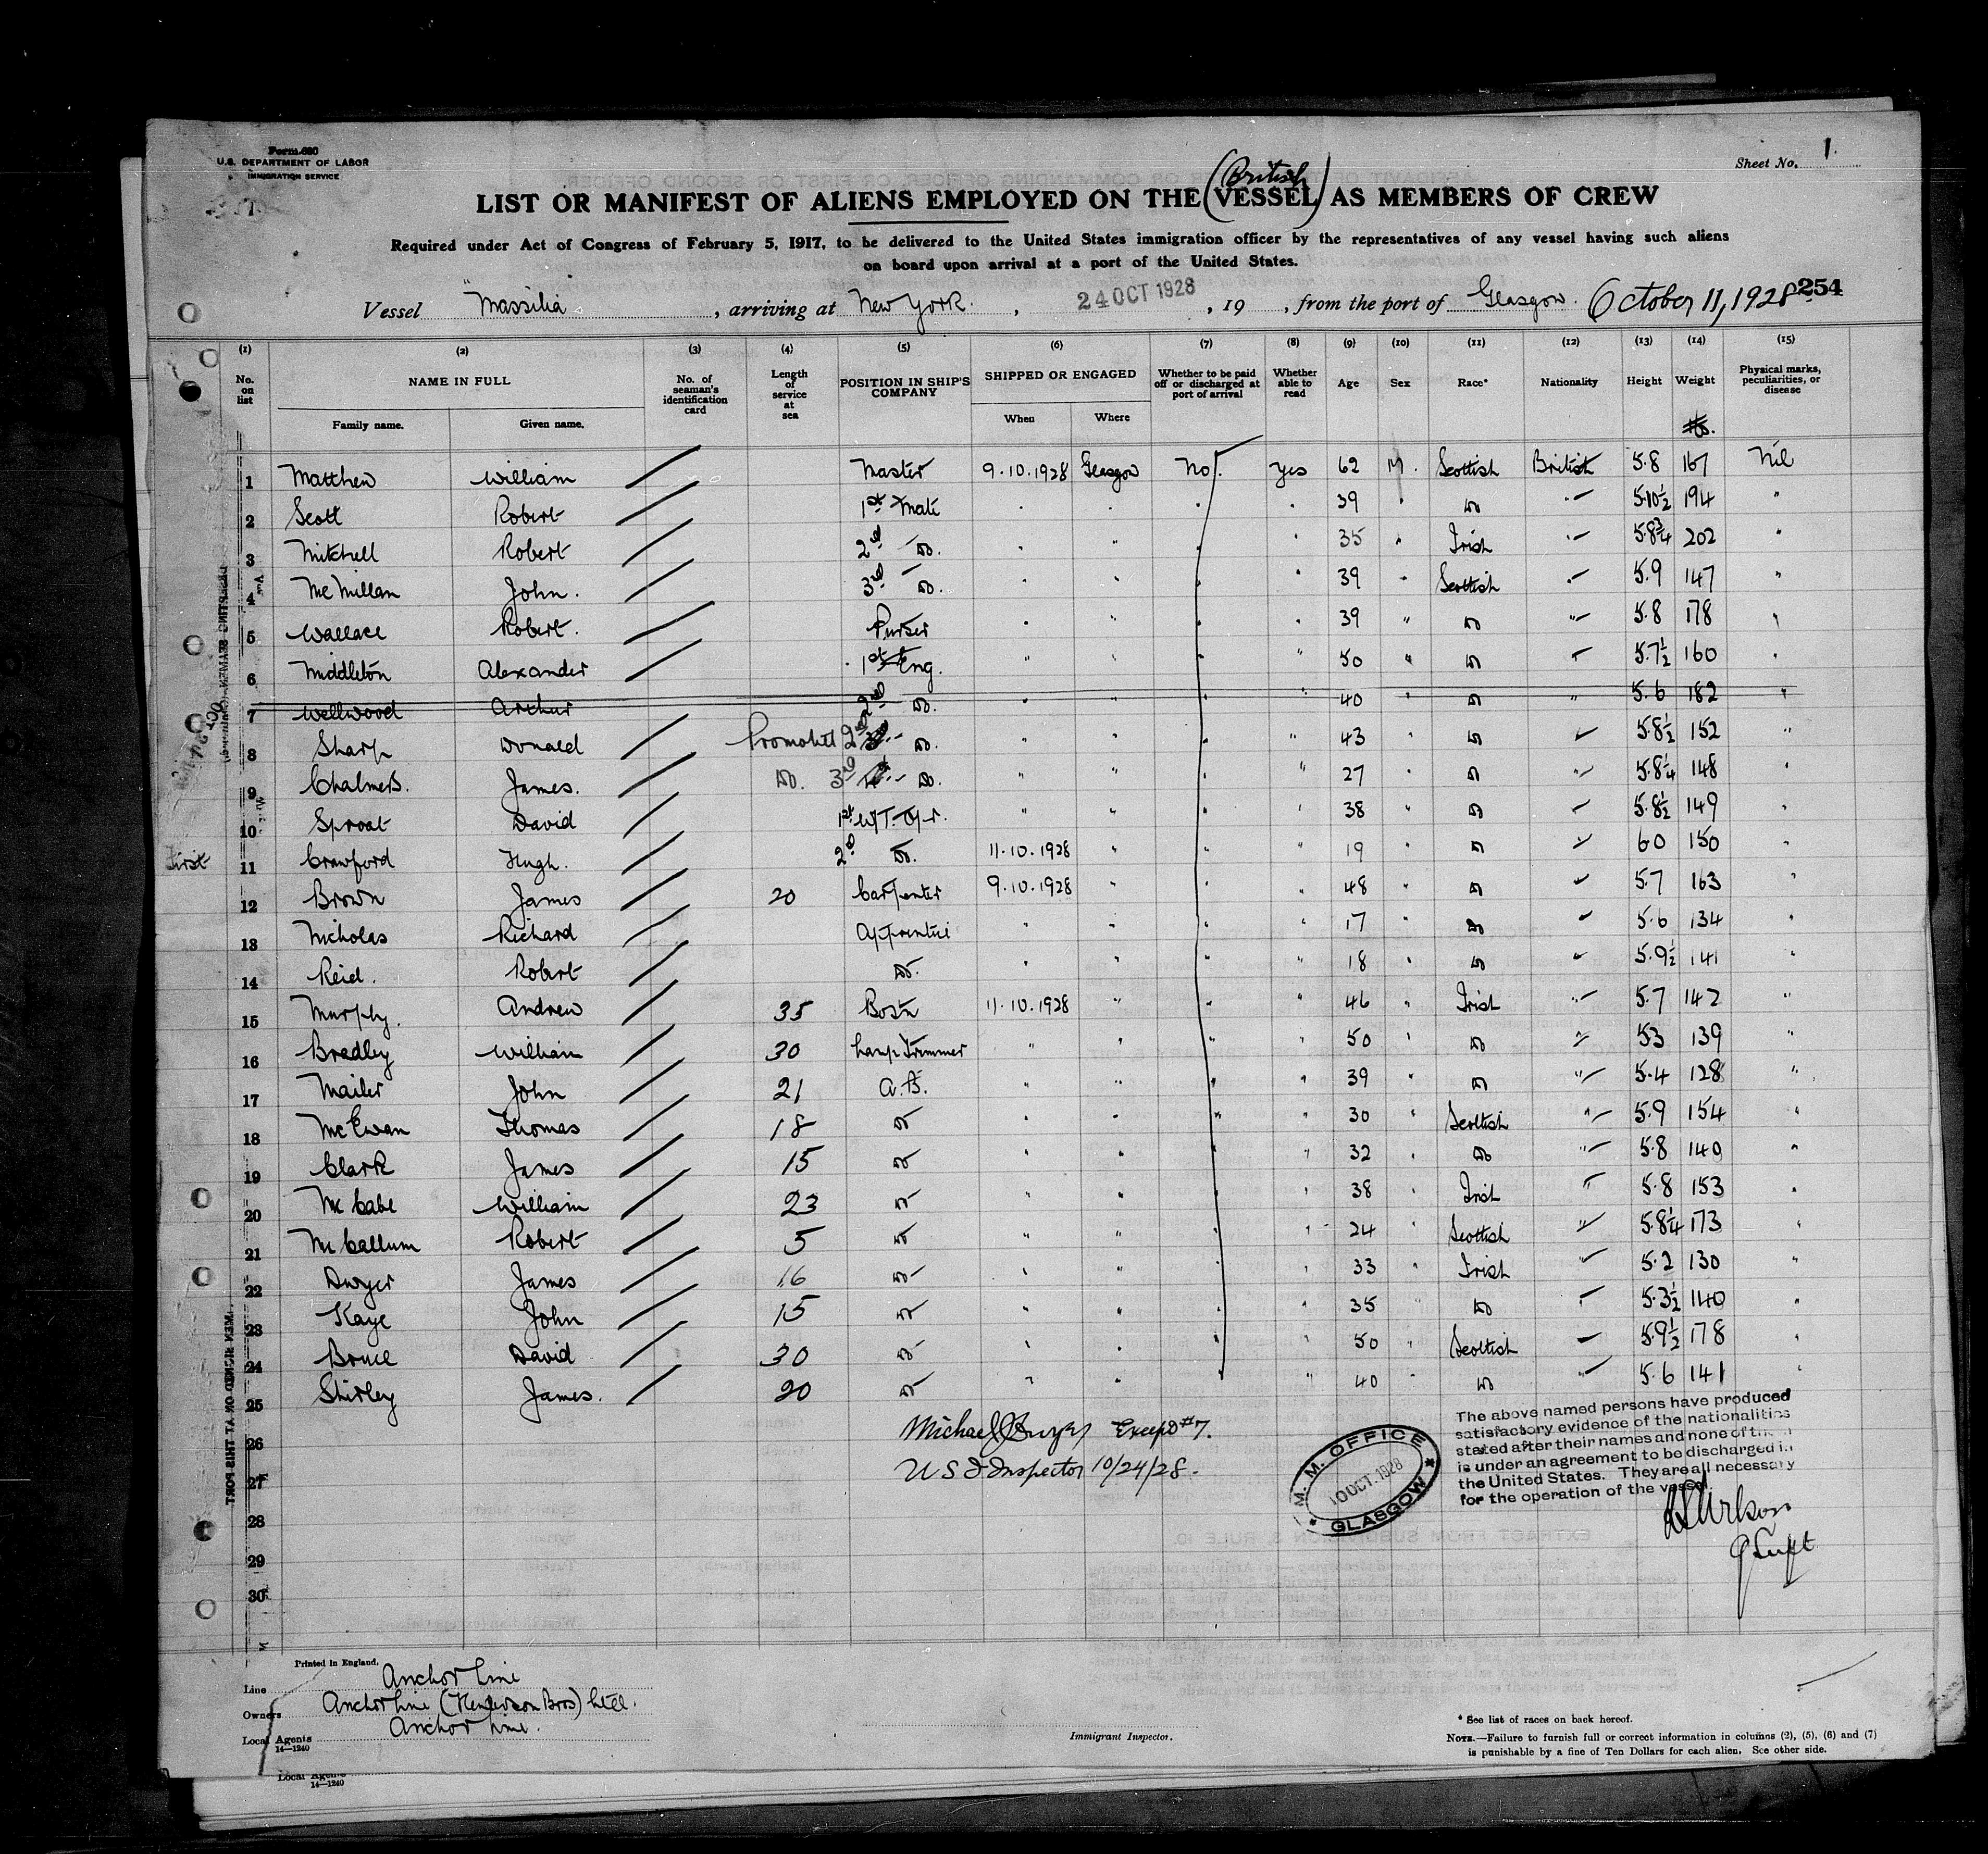 Form 680
U.S. DEPARTMENT OF LABOR
IMMIGRATION SERVICE
Sheet No. 1.
(British)
LIST OR MANIFEST OF ALIENS EMPLOYED ON THE VESSEL AS MEMBERS OF CREW
Required under Act of Congress of February 5, 1917, to be delivered to the United States immigration officer by the representatives of any vessel having such aliens
on board upon arrival at a port of the United States.
Vessel "Massilia", arriving at New York. , 24 OCT 1928 , 19 , from the port of Glasgow. October 11, 1928 254
(1) (2) (3) (4) (5) (6) (7) (8) (9) (10) (11) (12) (13) (14) (15)
No. on list NAME IN FULL No. of seaman's identification card Length of service at sea POSITION IN SHIP'S COMPANY SHIPPED OR ENGAGED Whether to be paid off or discharged at port of arrival Whether able to read Age Sex Race* Nationality Height Weight Physical marks, peculiarities, or disease
Family name. Given name. When Where
1 Matthew William Master 9.10.1928 Glasgow No. Yes 62 M. Scottish British 5.8 167 Nil
2 Scott Robert 1st Mate " " " " 39 " Do " 5.10½ 194 "
3 Mitchell Robert 2nd Do. " " " " 35 " Irish " 5.8¾ 202 "
4 McMillan John. 3rd Do. " " " " 39 " Scottish " 5.9 147 "
5 Wallace Robert. Purser " " " " 39 " Do " 5.8 178 "
6 Middleton Alexander 1st Eng. " " " " 50 " Do " 5.7½ 160 "
7 Wellwood Arthur 2nd Do. " " " " 40 " Do " 5.6 182 "
8 Sharp Donald Promoted 2nd 3rd Do. " " " " 43 " Do " 5.8½ 152 "
9 Chalmers. James. Do. 3rd 4th Do. " " " " 27 " Do " 5.8¼ 148 "
10 Sproat David 1st W/T. Opr. " " " " 38 " Do " 5.8½ 149 "
First 11 Crawford Hugh. 2nd Do. 11.10.1928 " " " 19 " Do " 6 0 150 "
12 Brown James 20 Carpenter 9.10.1928 " " " 48 " Do " 5.7 163 "
13 Nicholas Richard Apprentice " " " " 17 " Do " 5.6 134 "
14 Reid. Robert Do. " " " " 18 " Do " 5.9½ 141 "
15 Murphy. Andrew 35 Bosn 11.10.1928 " " " 46 " Irish " 5.7 142 "
16 Bradley William 30 Lamp Trimmer " " " " 50 " Do " 5.3 139 "
17 Mailer John 21 A.B. " " " " 39 " Do " 5.4 128 "
18 McEwan Thomas 18 Do " " " " 30 " Scottish " 5.9 154 "
19 Clark James 15 Do " " " " 32 " Do " 5.8 140 "
20 McCabe William 23 Do " " " " 38 " Irish " 5.8 153 "
21 McCallum Robert 5 Do " " " " 24 " Scottish " 5.8¼ 173 "
22 Dwyer James 16 Do " " " " 33 " Irish " 5.2 130 "
23 Kaye John 15 Do " " " " 35 " Do " 5.3½ 140 "
24 Bruce David 30 Do " " " " 50 " Scottish " 5.9½ 178 "
25 Shirley James. 20 Do " " " " 40 " Do " 5.6 141 "
26
27
28
29
30
Michael J Dwyer Except #7.
U S I Inspector 10/24/28.
M. M. OFFICE
10 OCT. 1928
* GLASGOW *
The above named persons have produced
satisfactory evidence of the nationalities
stated after their names and none of them
is under an agreement to be discharged in
the United States. They are all necessary
for the operation of the vessel.
Printed in England.
Line Anchor Line
Owners Anchor Line (Henderson Bros) Ltd.
Local Agents Anchor Line.
14—1240
Immigrant Inspector.
* See list of races on back hereof.
NOTE.—Failure to furnish full or correct information in columns (2), (5), (6) and (7)
is punishable by a fine of Ten Dollars for each alien. See other side.
Local Agents
14—1240